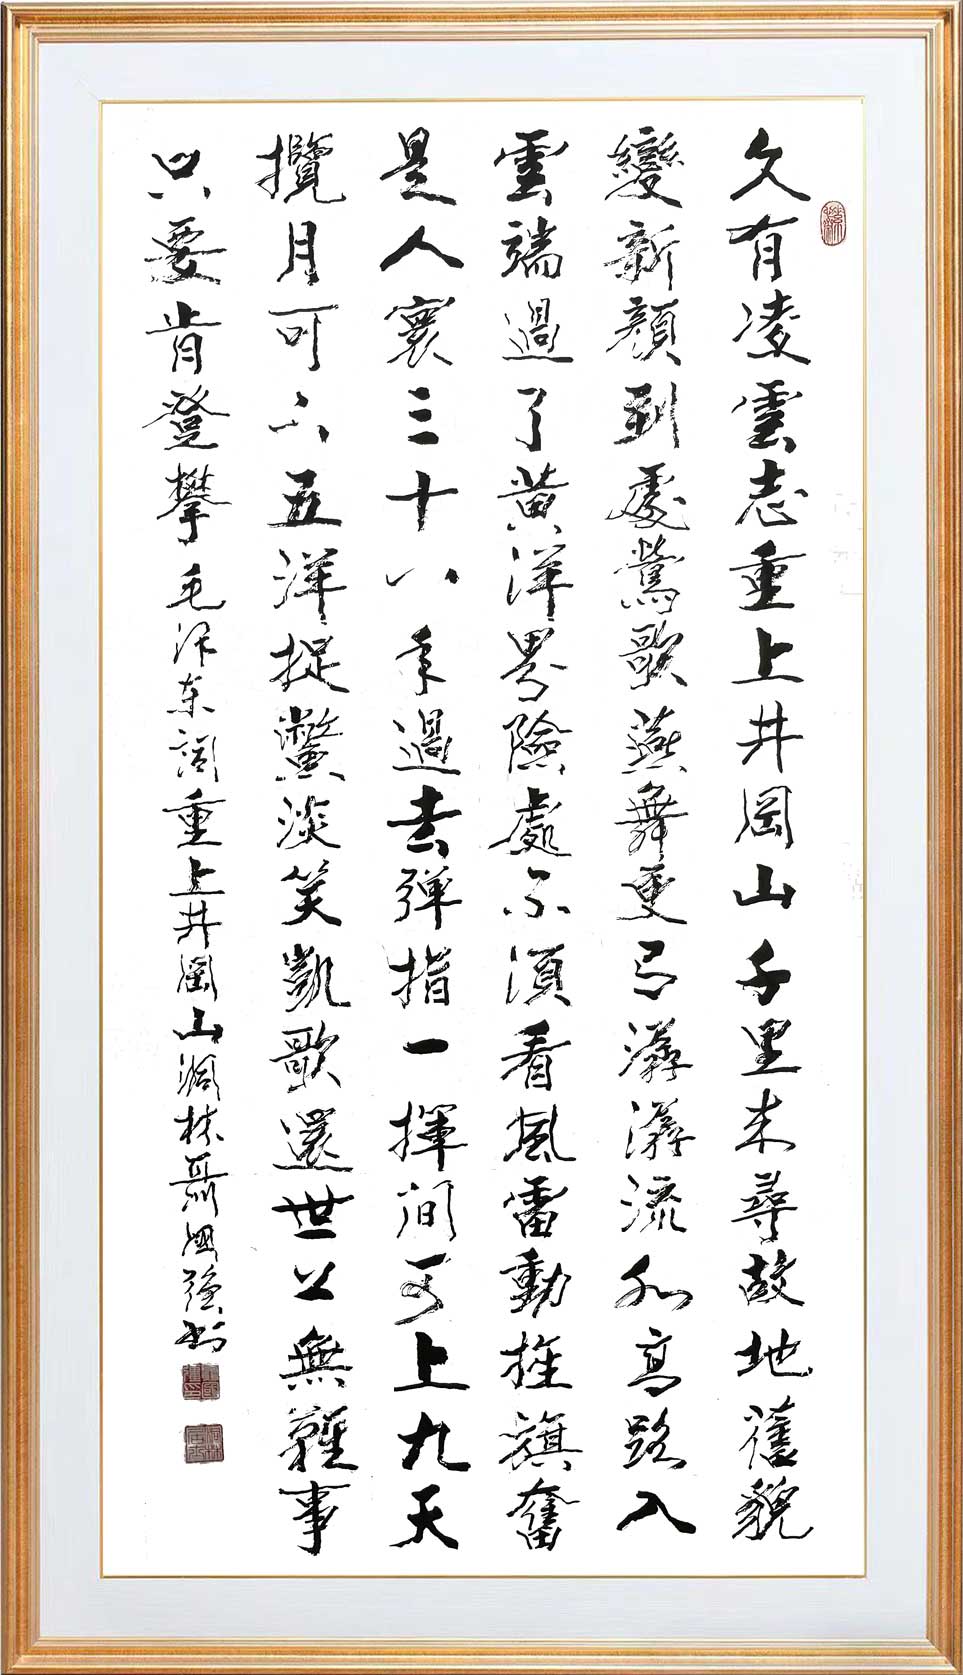 久有凌雲志重上井岡山千里来尋故地舊貌
變新顏到處鶯歌燕舞更有潺潺流水高路入
雲端過了黃洋界險處不須看風雷動旌旗奮
是人寰三十八年過去弹指一揮间可上九天
攬月可下五洋捉鱉淡笑凱歌還世上無難事
只要肯登攀毛泽东词重上井岡山洞林聶國強书